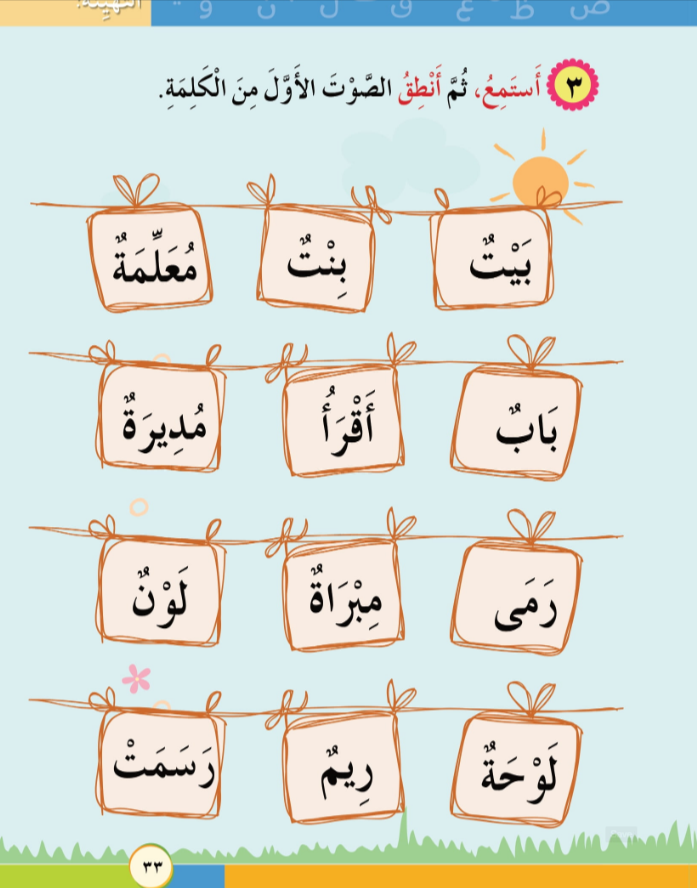 التَّهْيِئَة:
ص ظ ع ق ل ن و ي
٣ أَستَمِعُ، ثُمَّ أَنْطِقُ الصَّوْتَ الأَوَّلَ مِنَ الْكَلِمَةِ.
بَيْتٌ بِنْتٌ مُعَلِّمَةٌ
بَابٌ أَقْرَأُ مُدِيرَةٌ
رَمَى مِبْرَاةٌ لَوْنٌ
لَوْحَةٌ رِيمٌ رَسَمَتْ
٣٣